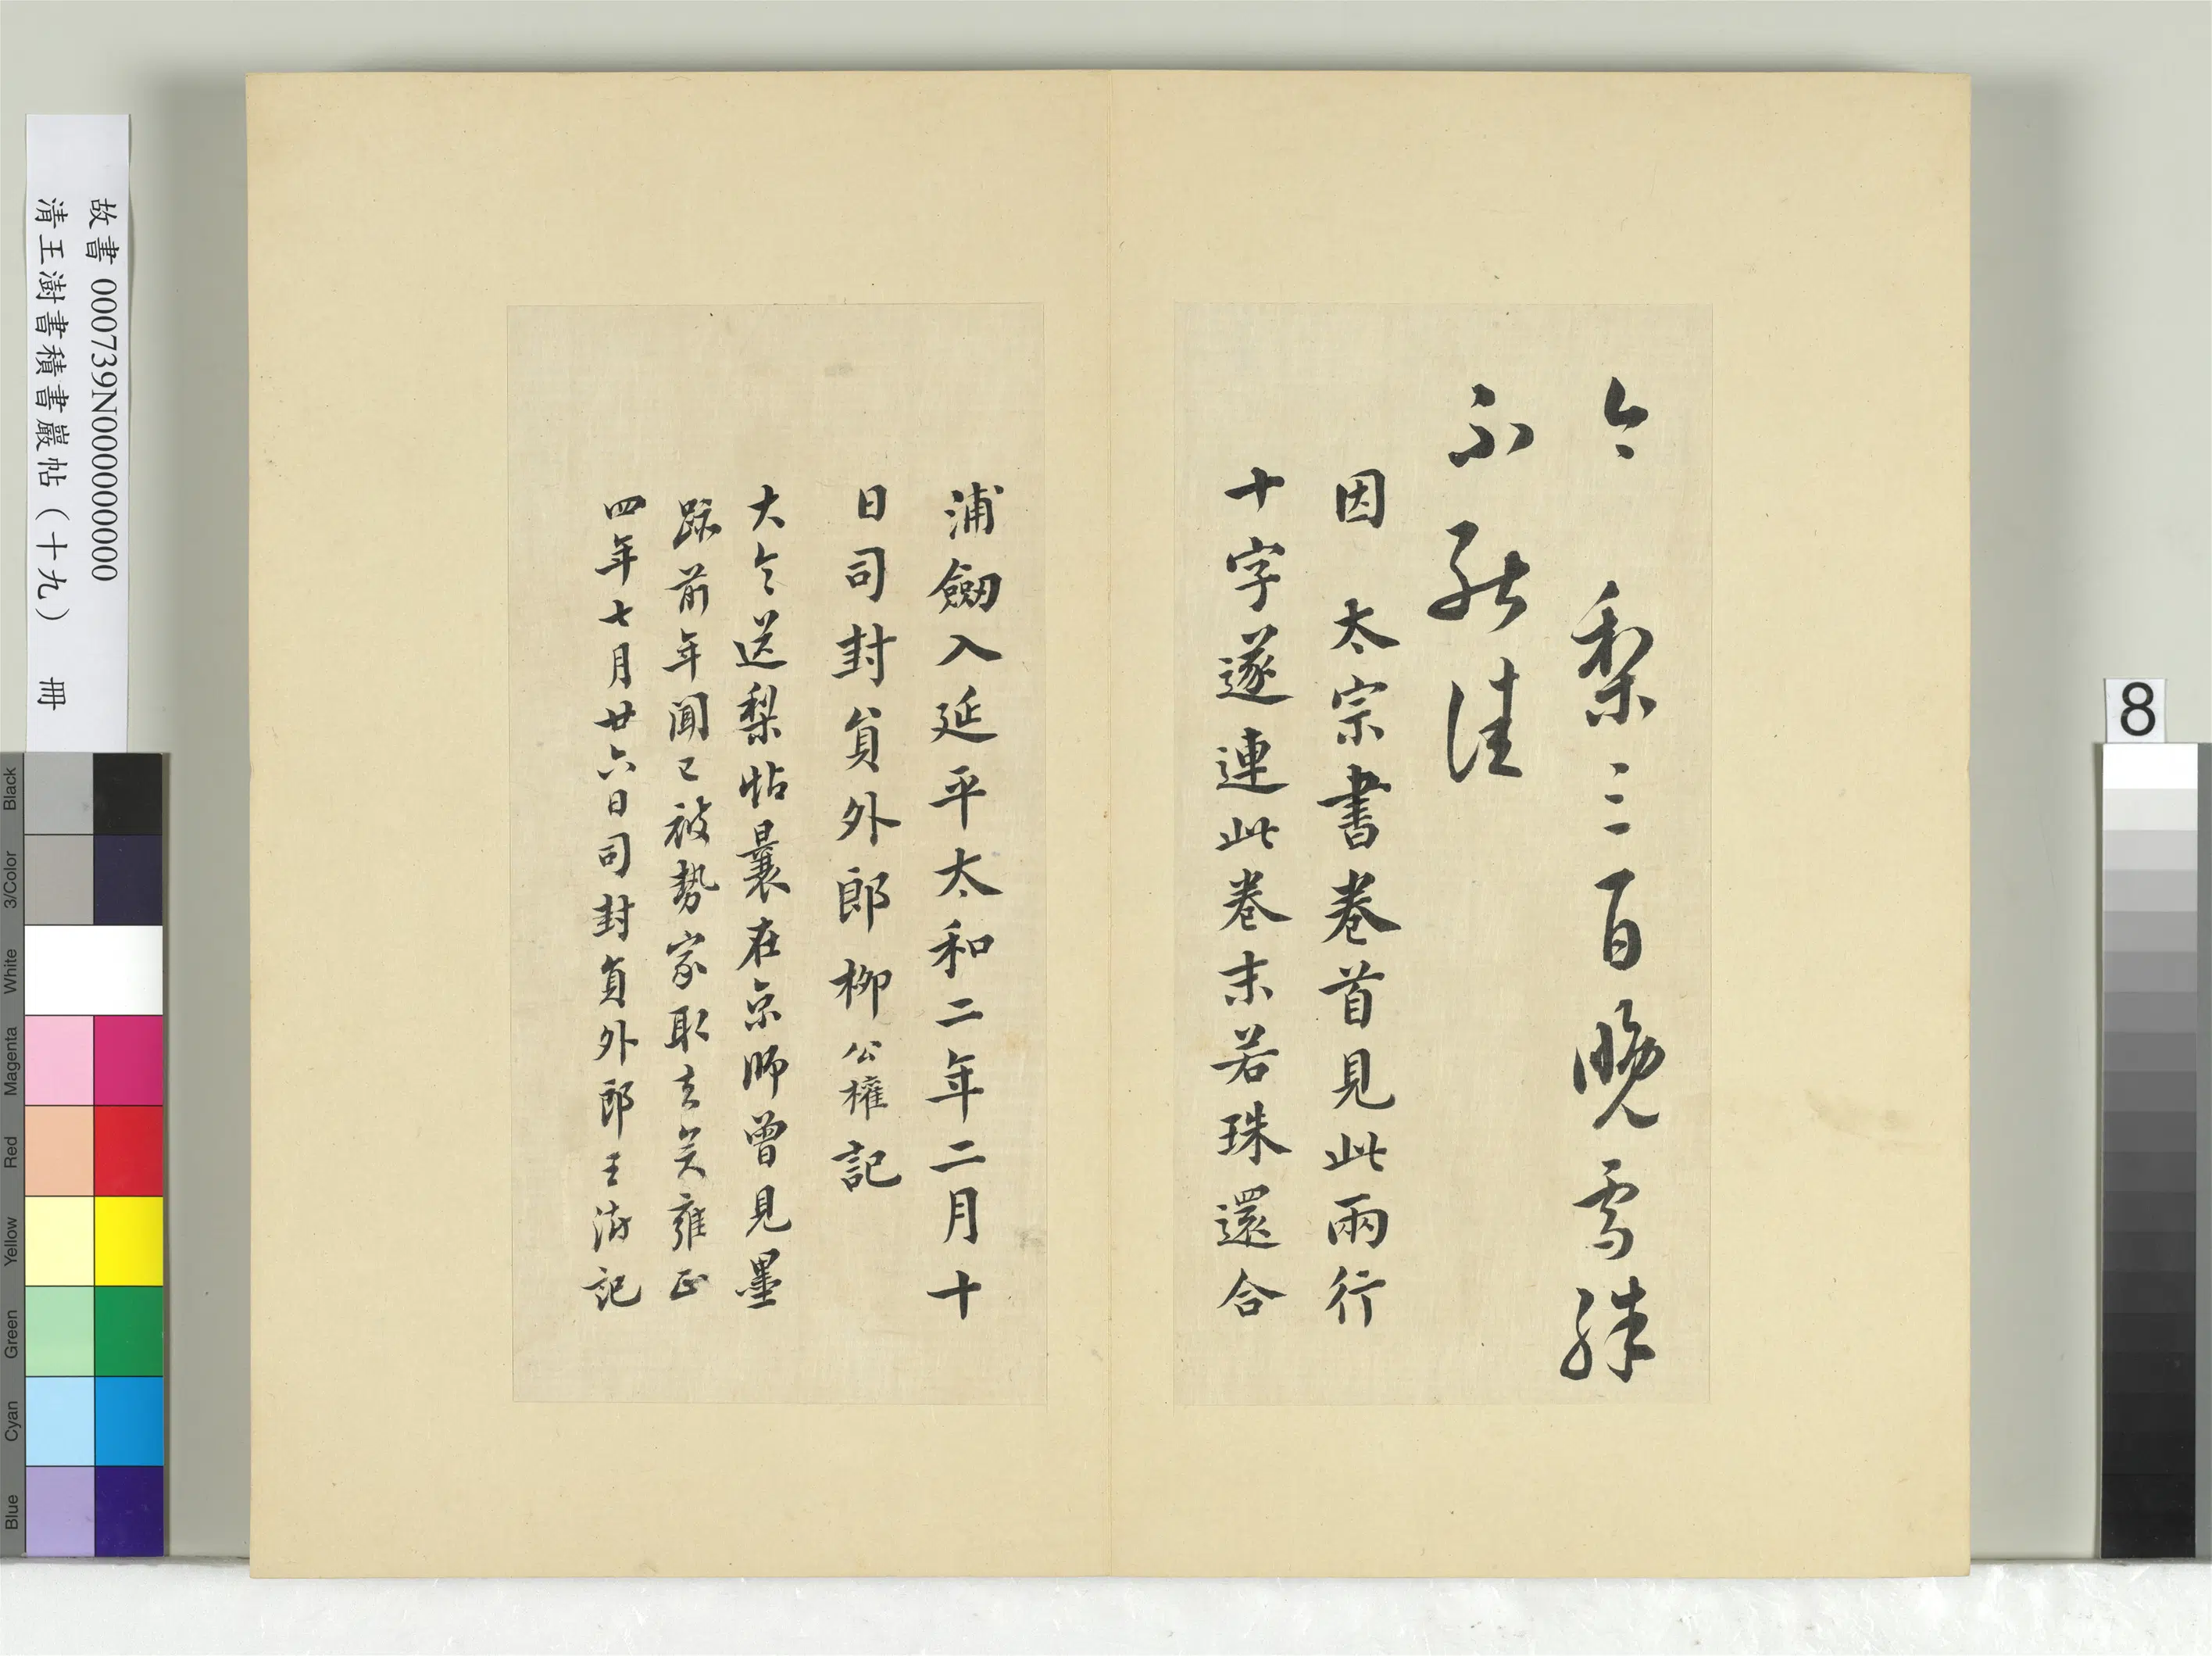 今 梨三百晚雪殊
不能佳
因 太宗書卷首見此兩行
十字遂連此卷末若珠還合
浦劒入延平太和二年二月十
日司封負外郎柳公權記
大令送梨帖曩在京師曾見墨
跡前年聞已被勢家取去矣雍正
四年七月廿六日司封負外郎王澍記
故書 000739N000000000
清王澍書積書巖帖(十九) 冊
8
Black
3/Color
White
Magenta
Red
Yellow
Green
Cyan
Blue